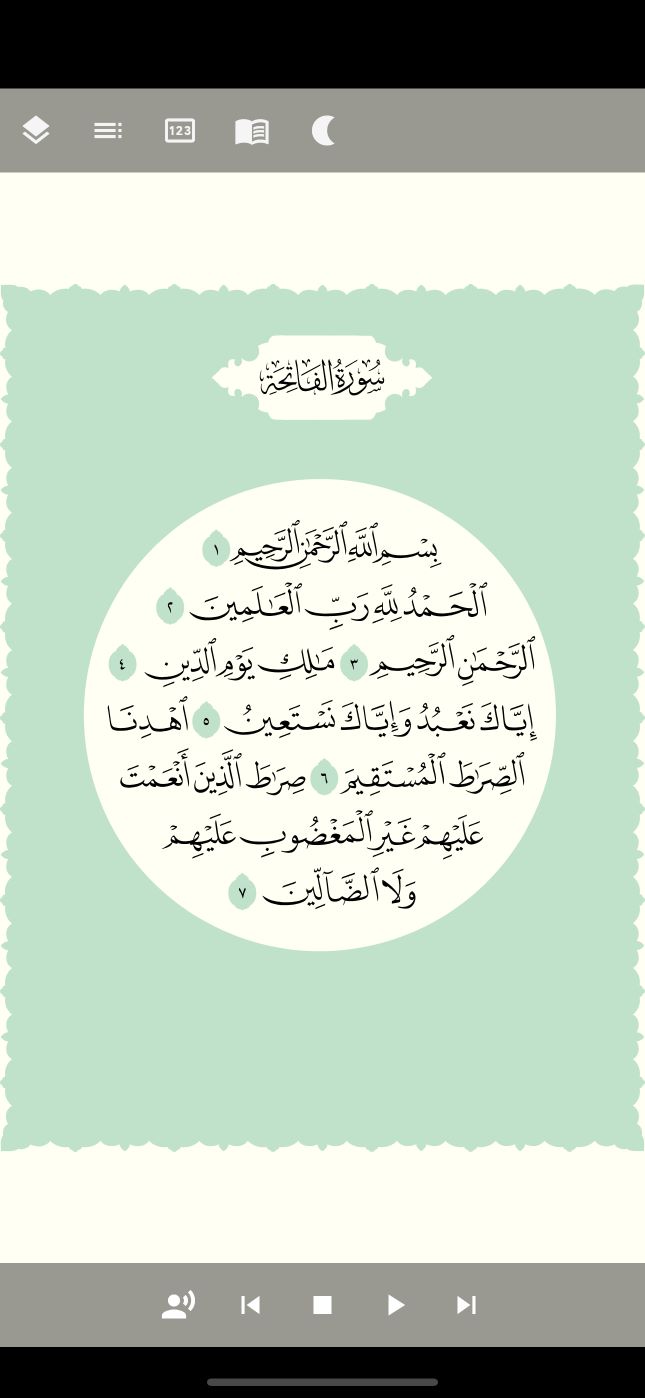 123
سُورَةُ الفَاتِحَةِ
بِسْمِ ٱللَّهِ ٱلرَّحْمَٰنِ ٱلرَّحِيمِ ١
ٱلْحَمْدُ لِلَّهِ رَبِّ ٱلْعَٰلَمِينَ ٢
ٱلرَّحْمَٰنِ ٱلرَّحِيمِ ٣ مَٰلِكِ يَوْمِ ٱلدِّينِ ٤
إِيَّاكَ نَعْبُدُ وَإِيَّاكَ نَسْتَعِينُ ٥ ٱهْدِنَا
ٱلصِّرَٰطَ ٱلْمُسْتَقِيمَ ٦ صِرَٰطَ ٱلَّذِينَ أَنْعَمْتَ
عَلَيْهِمْ غَيْرِ ٱلْمَغْضُوبِ عَلَيْهِمْ
وَلَا ٱلضَّآلِّينَ ٧